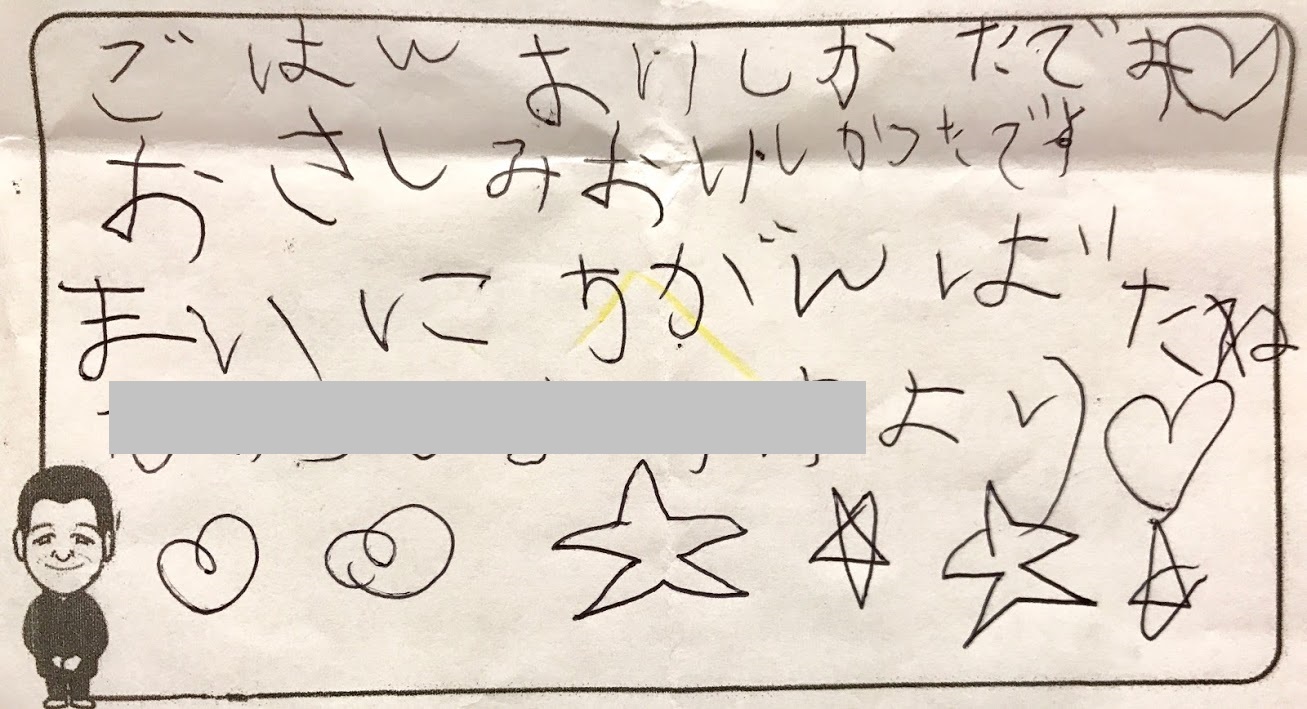 ごはんおいしかたです
おさしみおいしかつたです
まいにちがんばたね
より